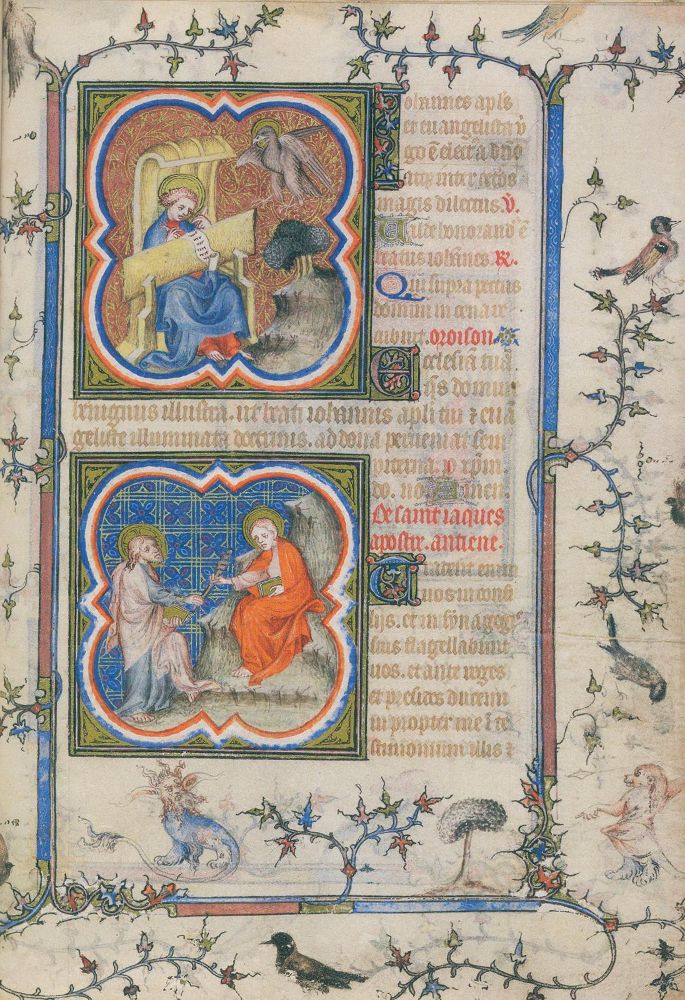 Iohannes apls
et euangelista v
go ē electa dño
atqz inter ceteros
magis dilectus. V.
Valde honorand ē
beatus iohānes. R.
Qui supra pectus
domini in cena re
cubuit. oroison
Ecclesiā tuā
domine
benignus illustra. ut beati iohannis apli tui & euā
geliste illuminata doctrinis. ad dona perueniat sem
piterna. p xpm
do. no. Amen.
De saint iaques
apostre. antiene.
Tradent enim
uos in consi
lijs. et in synagogis
suis flagellabunt
uos. et ante reges
et presides ducemi
ni propter me ī te
stimonium illis &